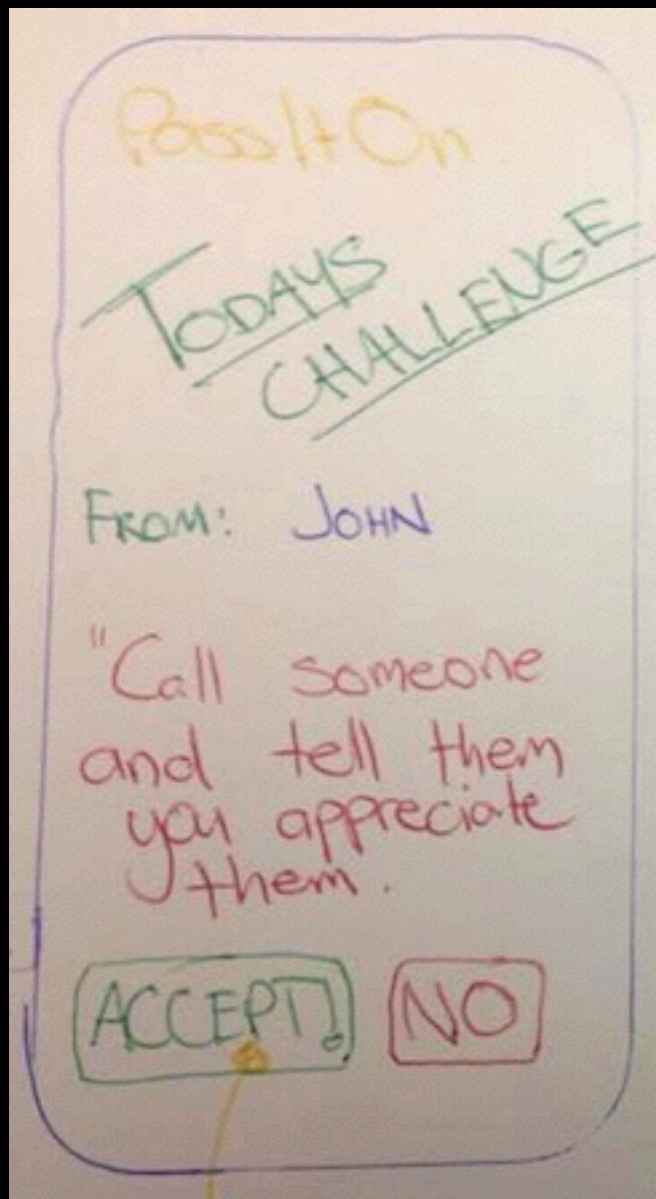 PassItOn
TODAYS
CHALLENGE
FROM: JOHN
"Call someone
and tell them
you appreciate
them.
ACCEPT!
NO